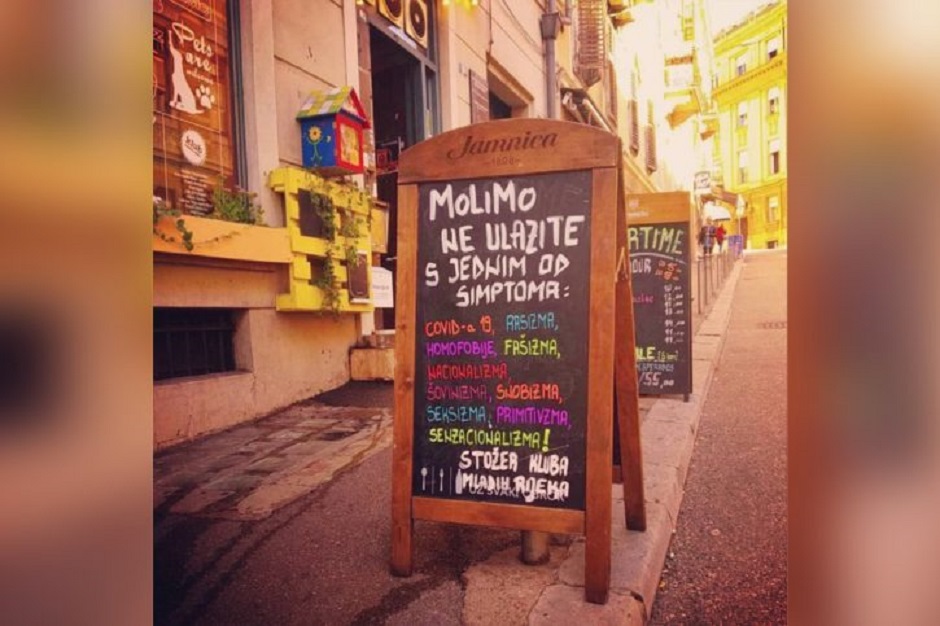 Jamnica
MOLIMO
NE ULAZITE
S JEDNIM OD
SIMPTOMA:
COVID-a 19, RASIZMA,
HOMOFOBIJE, FAŠIZMA,
NACIONALIZMA
ŠOVINIZMA, SNOBIZMA,
SEKSIZMA, PRIMITIVIZMA,
SENZACIONALIZMA!
STOŽER KLUBA
MLADIH RIJEKA
Pets
are
RTIME